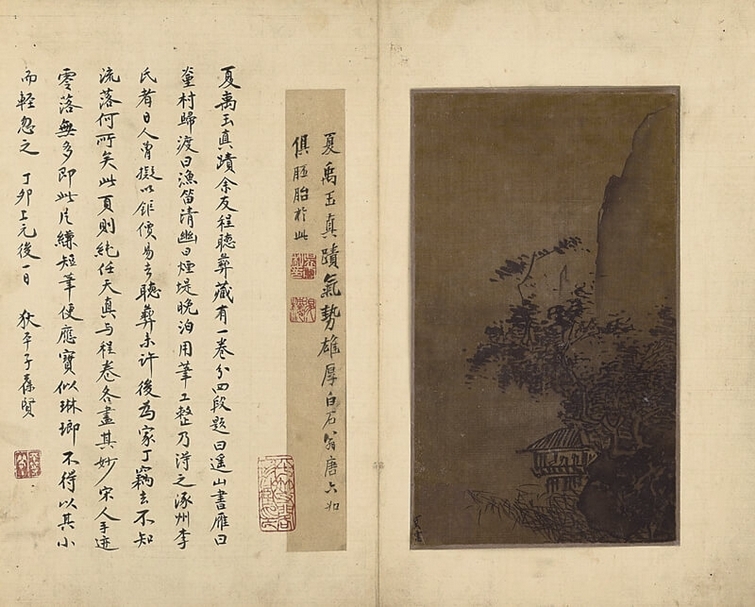 夏禹玉真蹟氣勢雄厚白石翁唐六如
俱胚胎於此
夏禹玉真蹟余友程聽彝藏有一卷分四段題曰遥山書雁曰
煙村歸渡曰漁笛清幽曰煙堤晚泊用筆工整乃得之涿州李
氏者日人曾擬以鉅價易去聽彝未許後為家丁竊去不知
流落何所矣此頁則純任天真与程卷各盡其妙宋人手迹
零落無多即此片縑短筆便應寶似琳瑯不得以其小
而輕忽之 丁卯上元後一日 狄平子葆賢